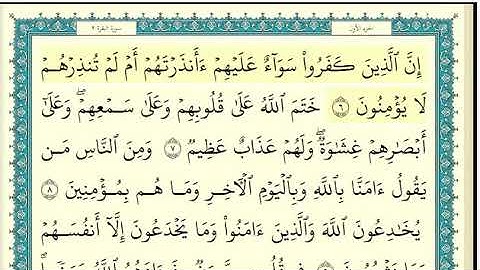 سورة البقرة ٢ الجزء الأول
إِنَّ ٱلَّذِينَ كَفَرُوا۟ سَوَآءٌ عَلَيْهِمْ ءَأَنذَرْتَهُمْ أَمْ لَمْ تُنذِرْهُمْ
لَا يُؤْمِنُونَ ٦ خَتَمَ ٱللَّهُ عَلَىٰ قُلُوبِهِمْ وَعَلَىٰ سَمْعِهِمْ ۖ وَعَلَىٰٓ
أَبْصَٰرِهِمْ غِشَٰوَةٌ ۖ وَلَهُمْ عَذَابٌ عَظِيمٌ ٧ وَمِنَ ٱلنَّاسِ مَن
يَقُولُ ءَامَنَّا بِٱللَّهِ وَبِٱلْيَوْمِ ٱلْءَاخِرِ وَمَا هُم بِمُؤْمِنِينَ ٨
يُخَٰدِعُونَ ٱللَّهَ وَٱلَّذِينَ ءَامَنُوا۟ وَمَا يَخْدَعُونَ إِلَّآ أَنفُسَهُمْ